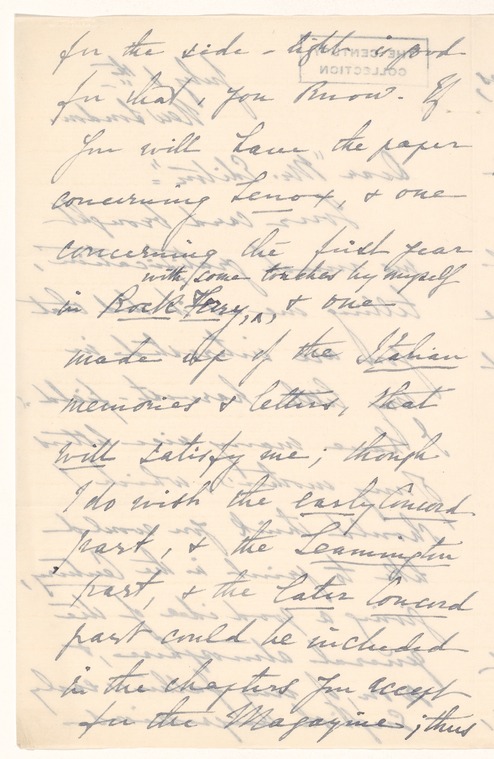 for the side - light is good
for that, you know. If
you will have the paper
concerning Lenox, & one
concerning the first year
with some touches by myself
in Rock Ferry, ^, & one
made up of the Italian
memories & letters, that
will satisfy me; though
I do wish the early Concord
part, & the Leamington
part, & the later Concord
part could be included
in the chapters you accept
for the Magazine; thus
THE CENTURY
COLLECTION